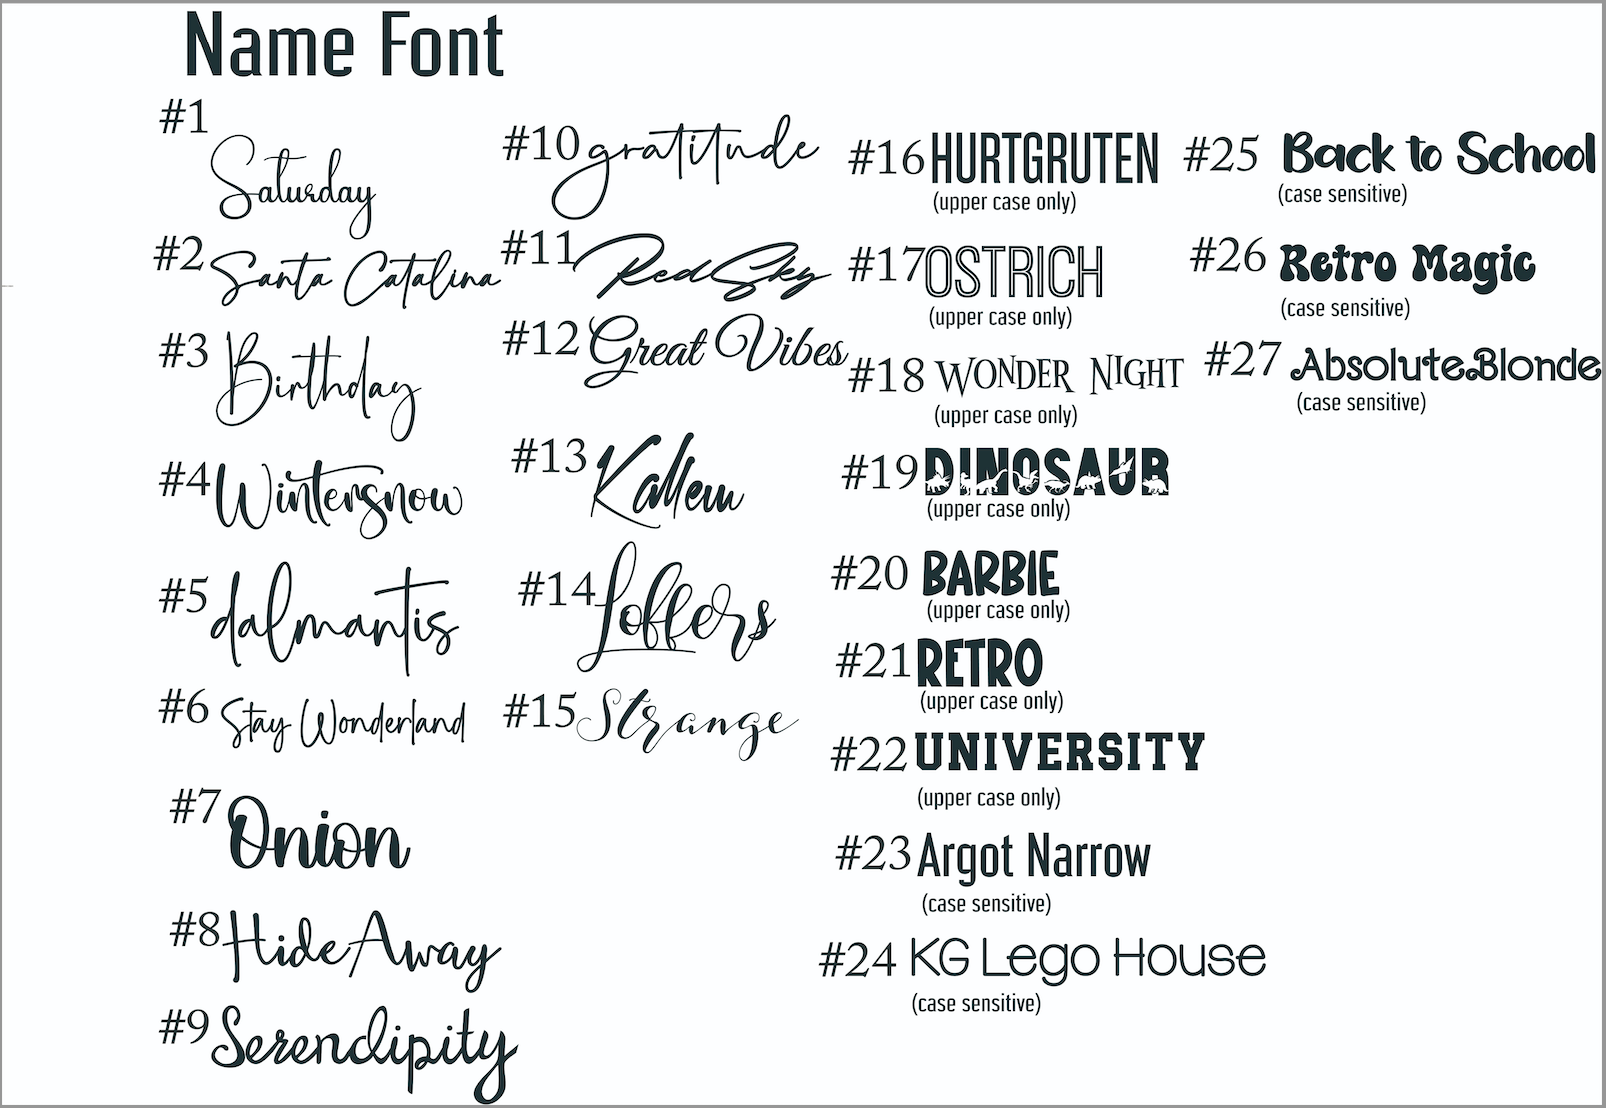 Name Font
#1 Saturday
#2 Santa Catalina
#3 Birthday
#4 Wintersnow
#5 dalmantis
#6 Stay Wonderland
#7 Onion
#8 HideAway
#9 Serendipity
#10 gratitude
#11 RedSky
#12 Great Vibes
#13 Kallem
#14 Loffers
#15 Strange
#16 HURTGRUTEN
(upper case only)
#17 OSTRICH
(upper case only)
#18 WONDER NIGHT
(upper case only)
#19 DINOSAUR
(upper case only)
#20 BARBIE
(upper case only)
#21 RETRO
(upper case only)
#22 UNIVERSITY
(upper case only)
#23 Argot Narrow
(case sensitive)
#24 KG Lego House
(case sensitive)
#25 Back to School
(case sensitive)
#26 Retro Magic
(case sensitive)
#27 AbsoluteBlonde
(case sensitive)